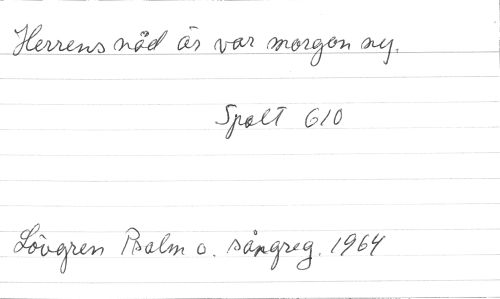 Herrens nåd är var morgon ny.
Spalt 610
Lövgren Psalm o. sångreg. 1964